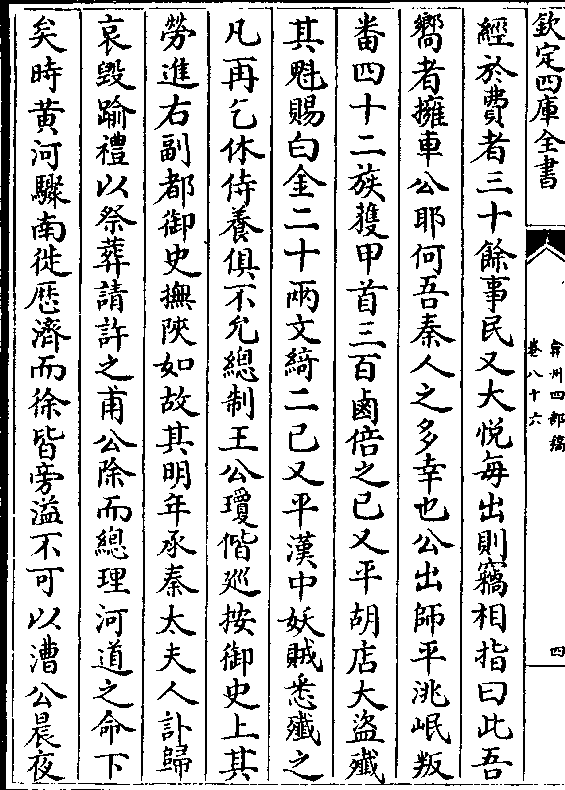 欽定四庫全書
弇州四部稿
卷八十六
四
經於費者三十餘事民又大悅每出則竊相指曰此吾
嚮者擁車公耶何吾秦人之多幸也公出師平洮岷叛
畨四十二族獲甲首三百鹵倍之已又平胡店大盜殲
其魁賜白金二十兩文綺二已又平漢中妖賊悉殲之
凡再乞休侍養俱不允總制王公瓊偕廵按御史上其
勞進右副都御史撫陜如故其明年承秦太夫人訃歸
哀毀踰禮以祭葬請許之甫公除而總理河道之命下
矣時黄河驟南徙歴濟而徐皆旁溢不可以漕公晨夜